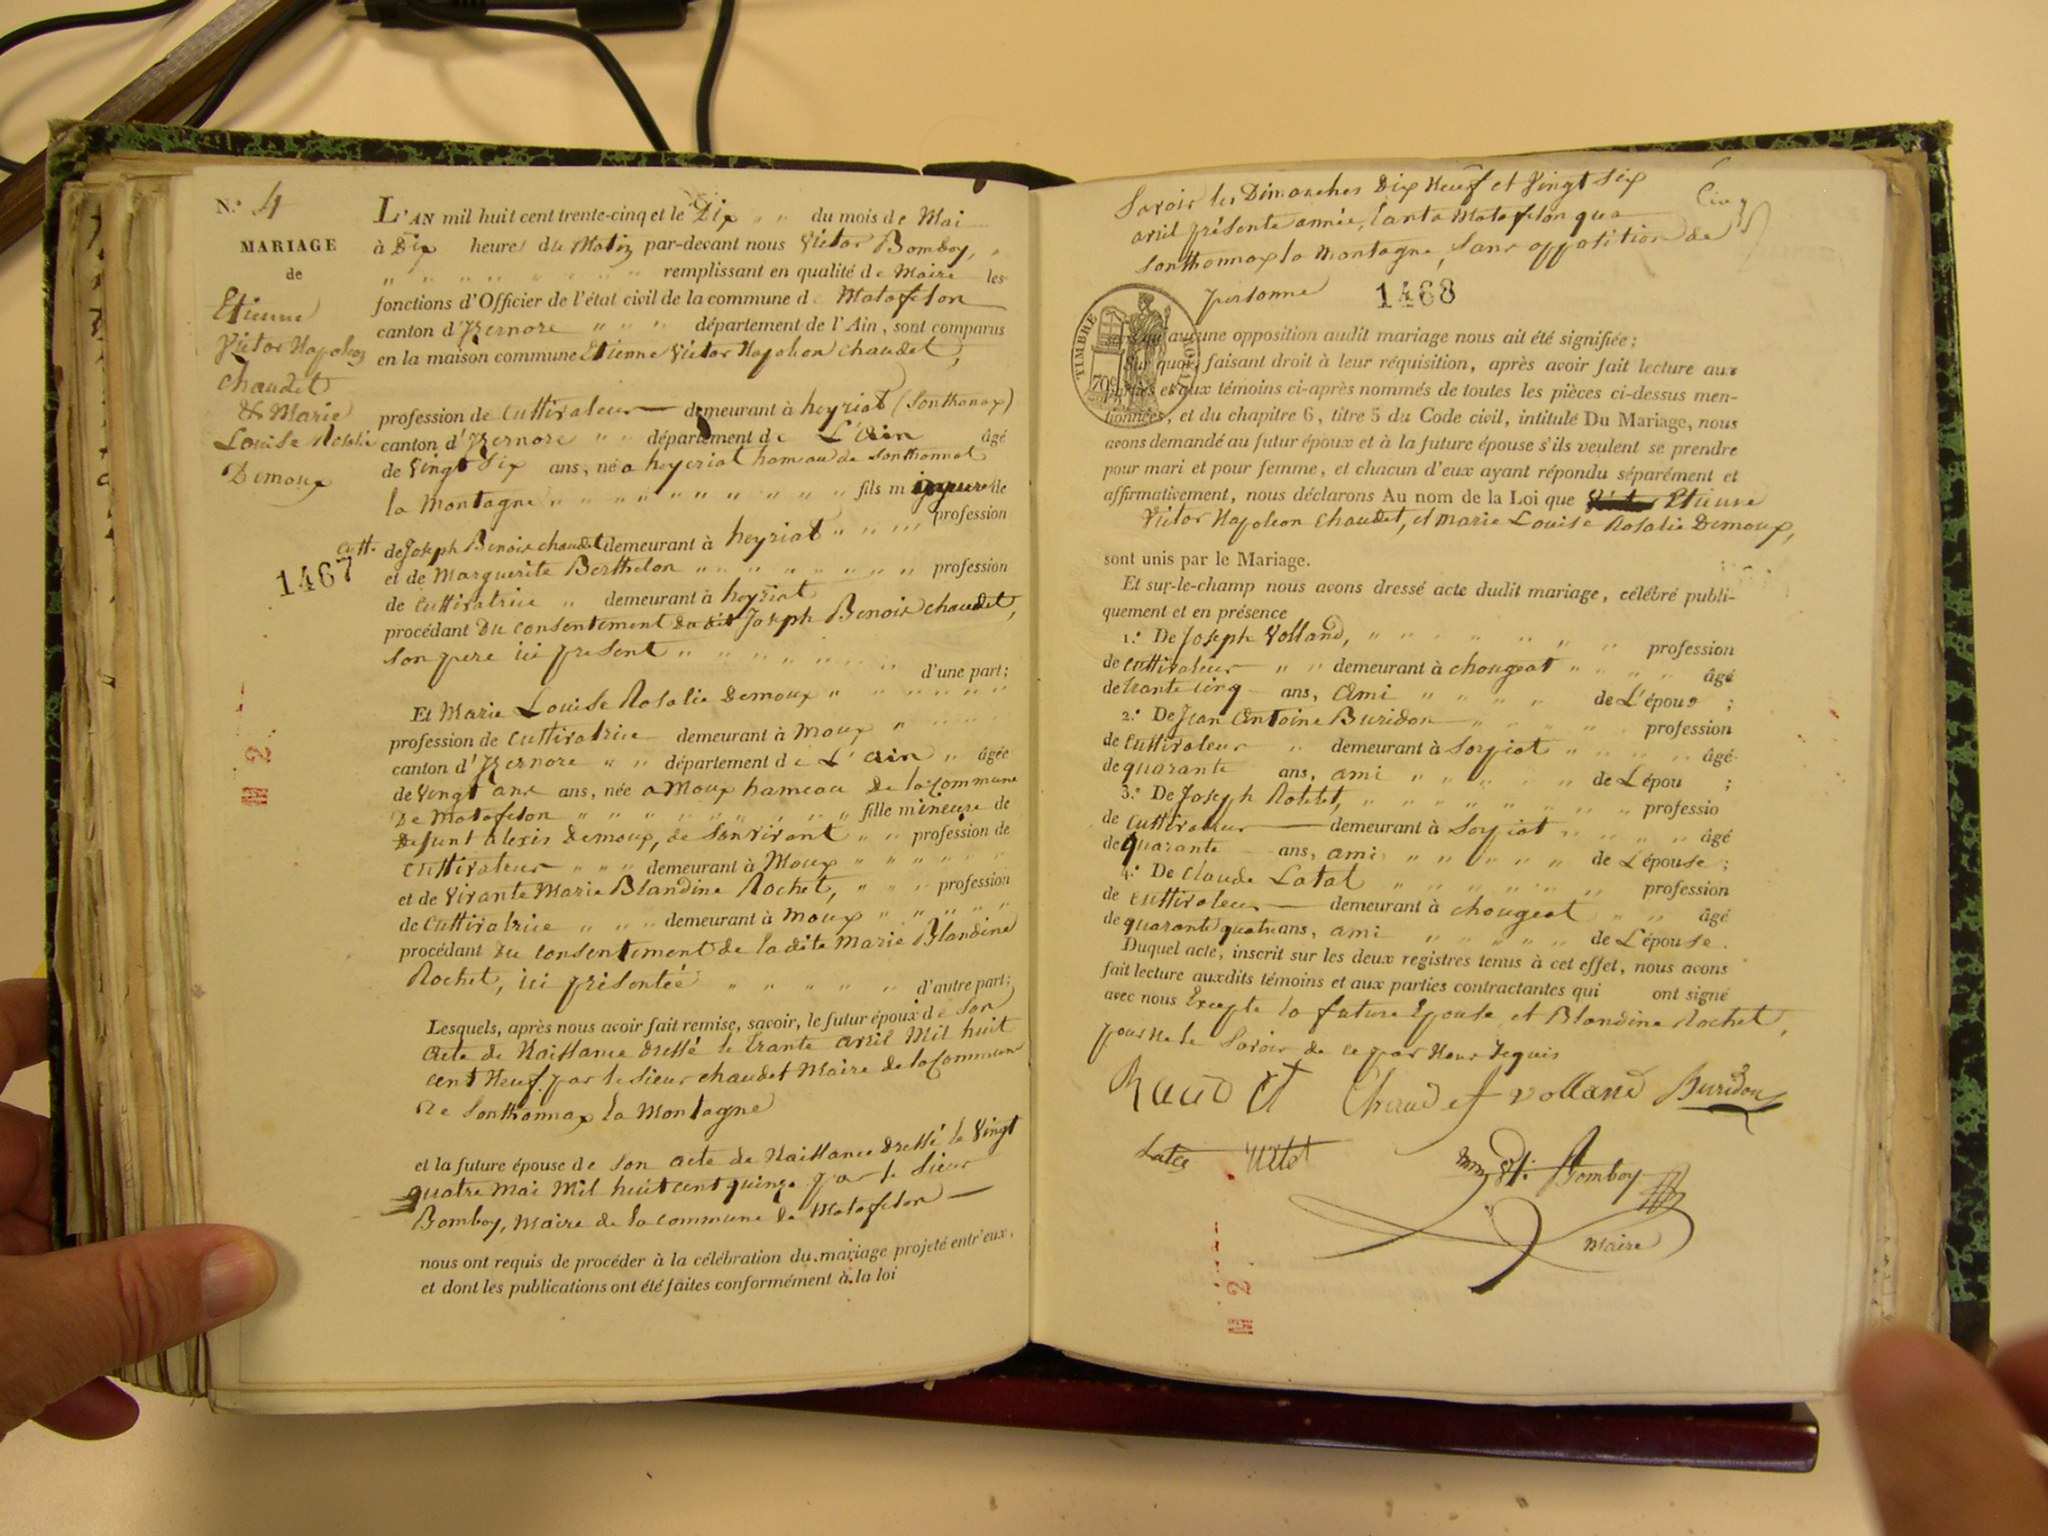 N.º 4
MARIAGE
de
Etienne
Victor Napoleon
chaudet
& Marie
Louise Rosalie
Demoux
1467
L'AN mil huit cent trente-cinq et le Dix " " du mois de Mai
à Dix heures du Matin par-devant nous Victor Bomboy, "
" " " " " " " " " remplissant en qualité de Maire les
fonctions d'Officier de l'état civil de la commune de Matafelon
canton d'Izernore " " " département de l'Ain, sont comparus
en la maison commune Etienne Victor Napoleon chaudet,
profession de cultivateur — demeurant à heyriat (Sonthonax)
canton d'Izernore " " département de L'Ain âgé
de Vingt Six ans, né a heyeriat hameau de Sonthonnat
la Montagne " " " " " " " " " " fils majeur de
cult. de Joseph Benoir chaudet demeurant à heyriat " " " profession
et de Marguerite Berthelon " " " " " " " " profession
de cultivatrice " demeurant à heyriat
procédant Du consentement du dit Joseph Benoir chaudet,
son pere ici present " " " " " " " " d'une part;
Et Marie Louise Rosalie Demoux " " " " " "
profession de cultivatrice demeurant à Moux " " " "
canton d'Izernore " " département de L'Ain " âgée
de Vingt ans ans, née a Moux hameau de la Commune
De Matafelon " " " " " " " " " " fille mineure de
Defunt alexis Demoux, de Son vivant " " profession de
cultivateur " " " demeurant à Moux " " " " " "
et de Vivante Marie Blandine Rochet, " " " profession
de cultivatrice " " " demeurant à Moux " " " " "
procédant Du consentement de la dite Marie Blandine
Rochet, ici présentée " " " " " d'autre part;
Lesquels, après nous avoir fait remise, savoir, le futur époux de Son
Acte de Naissance dressé le trante avril Mil huit
cent Neuf par le sieur chaudet Maire de la Commune
De Sonthonnax la Montagne
et la future épouse de Son acte de Naissance dressé le Vingt
quatre mai Mil huit cent quinze par le Sieur
Bomboy, Maire de la commune de Matafelon —
nous ont requis de procéder à la célébration du mariage projeté entr'eux,
et dont les publications ont été faites conformément à la loi
Savoir les Dimanches Dix Neuf et Vingt Six
avril présente année, tant a Matafelon qua
Sonthonnax la Montagne, Sans opposition de
personne
Cinq
1468
TIMBRE ROYAL
70c
aucune opposition audit mariage nous ait été signifiée;
Sur quoi, faisant droit à leur réquisition, après avoir fait lecture aux
parties et aux témoins ci-après nommés de toutes les pièces ci-dessus men-
tionnées, et du chapitre 6, titre 5 du Code civil, intitulé Du Mariage, nous
avons demandé au futur époux et à la future épouse s'ils veulent se prendre
pour mari et pour femme, et chacun d'eux ayant répondu séparément et
affirmativement, nous déclarons Au nom de la Loi que Etienne
Victor Napoleon chaudet, et marie Louise Rosalie Demoux,
sont unis par le Mariage.
Et sur-le-champ nous avons dressé acte dudit mariage, célébré publi-
quement et en présence
1.º De Joseph Volland, " " " " " " " " profession
de cultivateur " " demeurant à chougeat " " " " âgé
de trante cinq ans, ami " " " " de L'épous ;
2.º De Jean Antoine Buridon " " " " profession
de cultivateur " demeurant à Sorpiat " " " " âgé
de quarante ans, ami " " " " " " de L'épou ;
3.º De Joseph Rotetet, " " " " " " " " profession
de cultivateur — demeurant à Sorpiat " " " " " âgé
de quarante ans, ami " " " " " " de L'épouse ;
4.º De Claude Latat " " " " " " " profession
de cultivateur — demeurant à chougeat " " " âgé
de quarante quatre ans, ami " " " " " de L'épouse.
Duquel acte, inscrit sur les deux registres tenus à cet effet, nous avons
fait lecture auxdits témoins et aux parties contractantes qui ont signé
avec nous Excepte la future Epouse et Blandine Rochet,
pour ne le Savoir de ce par Nous requis
Chaudet Volland Buridon
Bomboy
Maire